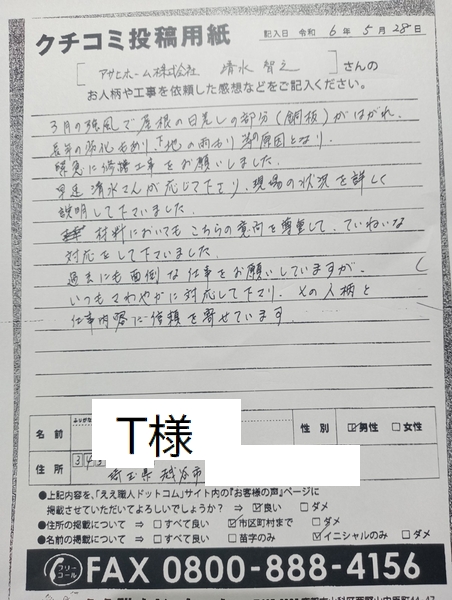 クチコミ投稿用紙
記入日 令和 6年 5月 28日
アサヒホーム株式会社 清水 智之 さんの
お人柄や工事を依頼した感想などをご記入ください。
3月の強風で屋根の日差しの部分(銅板)がはがれ、
長年の劣化もあり、下地の雨もり等の原因となり、
緊急に修繕工事をお願いしました。
早速清水さんが応じて下さり、現場の状況を詳しく
説明して下さいました。
材料においてもこちらの意向を尊重して、ていねいな
対応をして下さいました。
過去にも面倒な仕事をお願いしていますが、
いつもさわやかに対応して下さり、その人柄と
仕事内容に信頼を寄せています。
名前
T様
性別
☑男性 □女性
住所
343
埼玉県 越谷市
●上記内容を、「ええ職人ドットコム」サイト内の『お客様の声』ページに
掲載させていただいてよろしいでしょうか? ⇒ ☑良い □ダメ
●住所の掲載について ⇒ □すべて良い ☑市区町村まで □ダメ
●名前の掲載について ⇒ □すべて良い □苗字のみ ☑イニシャルのみ □ダメ
フリーコール
FAX 0800-888-4156